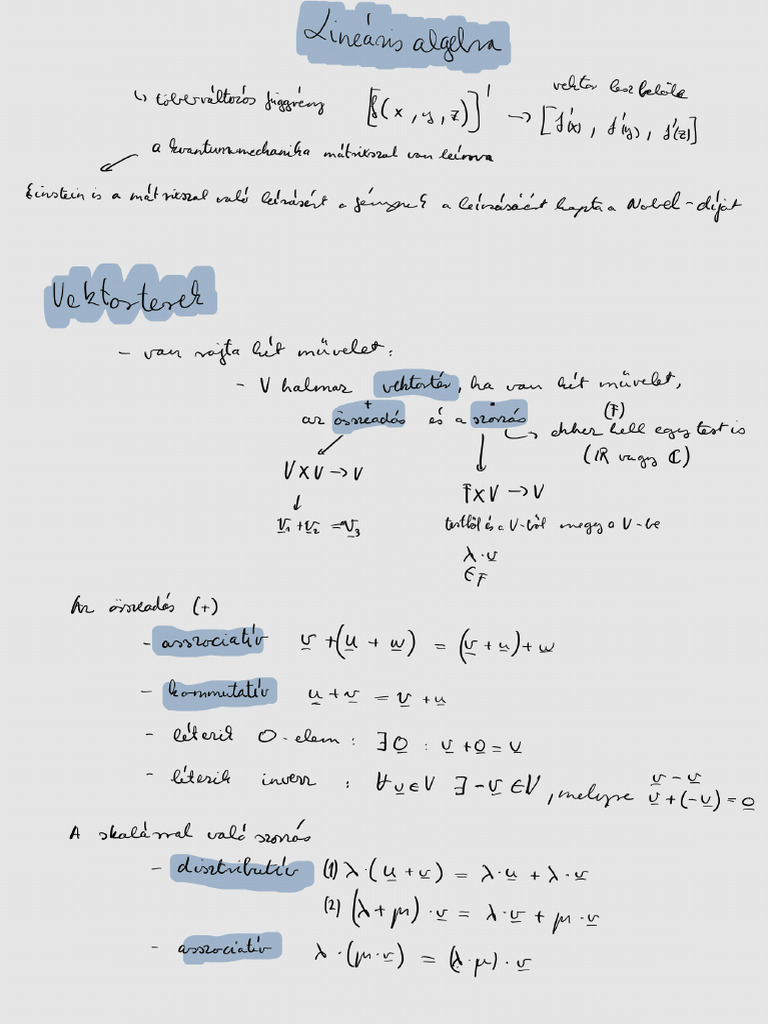 Lineáris algebra
↳ többváltozós függvény [f(x, y, z)]' → vektor lesz belőle [f'(x), f'(y), f'(z)]
a kvantummechanika mátrixszal van leírva
Einstein is a mátrixszal való leírásért a fényre a leírásáért kapta a Nobel-díját
Vektorterek
- van rajta két művelet:
- V halmaz vektortér, ha van két művelet,
az összeadás + és a szorzás · ↳ ehhez kell egy test is (F)
(ℝ vagy ℂ)
V×V → V
F×V → V
v₁ + v₂ = v₃
testből és a V-ből megy a V-be
λ·v
∈F
Az összeadás (+)
- asszociatív v + (u + w) = (v + u) + w
- kommutatív u + v = v + u
- létezik 0-elem: ∃0 : v + 0 = v
- létezik inverz : ∀v∈V ∃-v∈V, melyre v + (-v) = 0
v - v
A skalárral való szorzás
- disztributív (1) λ·(u + v) = λ·u + λ·v
(2) (λ + μ)·v = λ·v + μ·v
- asszociatív λ·(μ·v) = (λ·μ)·v